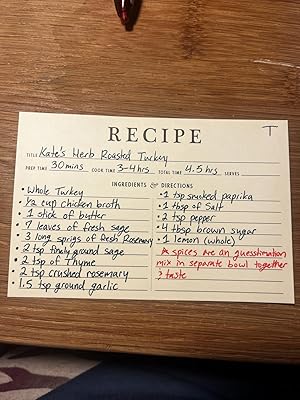 RECIPE
T
TITLE Kate's Herb Roasted Turkey
PREP TIME 30 mins COOK TIME 3-4 hrs TOTAL TIME 4.5 hrs SERVES
INGREDIENTS & DIRECTIONS
• Whole Turkey
• ½ cup chicken broth
• 1 stick of butter
• 7 leaves of fresh sage
• 3 long sprigs of fresh Rosemary
• 2 tsp finely ground sage
• 2 tsp of Thyme
• 2 tsp crushed rosemary
• 1.5 tsp ground garlic
• 1 tsp smoked paprika
• 1 tbsp of Salt
• 2 tsp pepper
• 4 tbsp brown sugar
• 1 lemon (whole)
* spices are an guesstimation
mix in separate bowl together
& taste